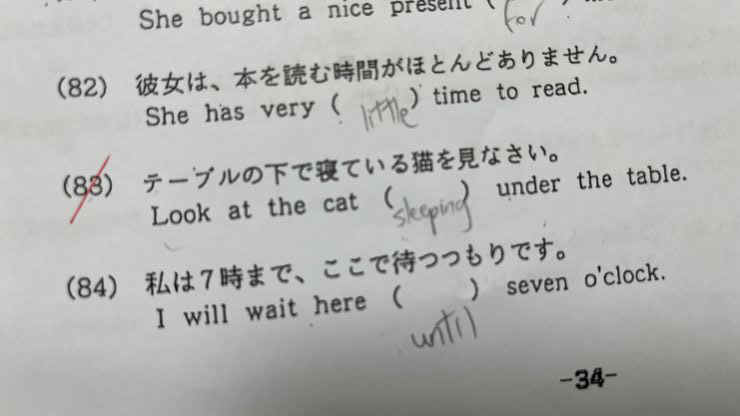 She bought a nice present ( for )
(82) 彼女は、本を読む時間がほとんどありません。
She has very ( little ) time to read.
(83) テーブルの下で寝ている猫を見なさい。
Look at the cat ( sleeping ) under the table.
(84) 私は7時まで、ここで待つつもりです。
I will wait here ( ) seven o'clock.
until
-34-